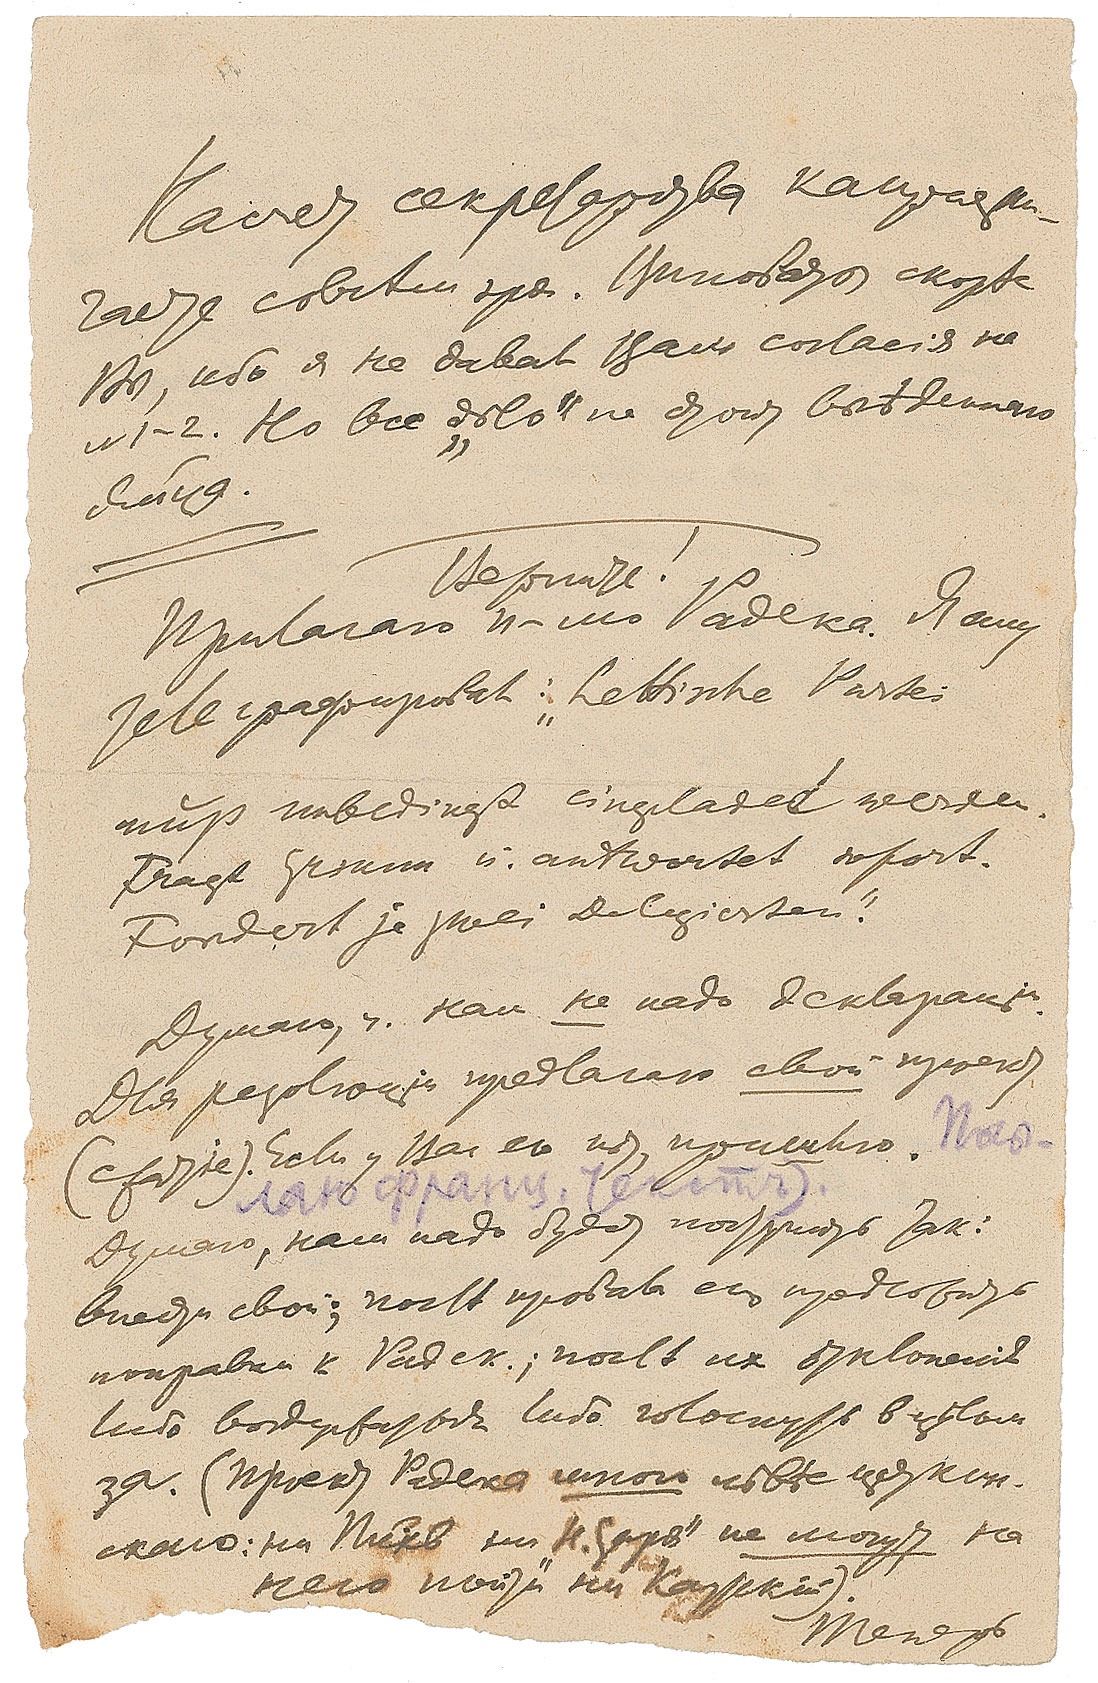 Насчет секретарства капризни-
чаете совсем зря. Виноваты скорѣе
Вы, ибо я не давал Вам согласія на
№ 1-2. Но все „дѣло“ не стоит выѣденнаго
яйца.
Верните!
Прилагаю п-мо Радека. Я ему
телеграфировал: „Lettische Partei
muß unbedingt eingeladet werden.
Fragt Grimm u. antwortet sofort.
Fordert je zwei Delegierten“.
Думаю, ч. нам не надо декларации.
Для резолюции предлагаю свой проект
(см. ). Если у Вас его нѣт, пришлю. Посы-
лаю франц. текст).
Думаю, нам надо будет поступить так:
внести свой; послѣ провала его предложить
поправки к Радек.; послѣ их отклоненія
либо воздержаться либо голоснуть в цѣлом
за. (Проект Радека много лѣвѣе циммервальд-
скаго: ни н. Заря“ не могут на
него пойти ни Каутский).
Теперь